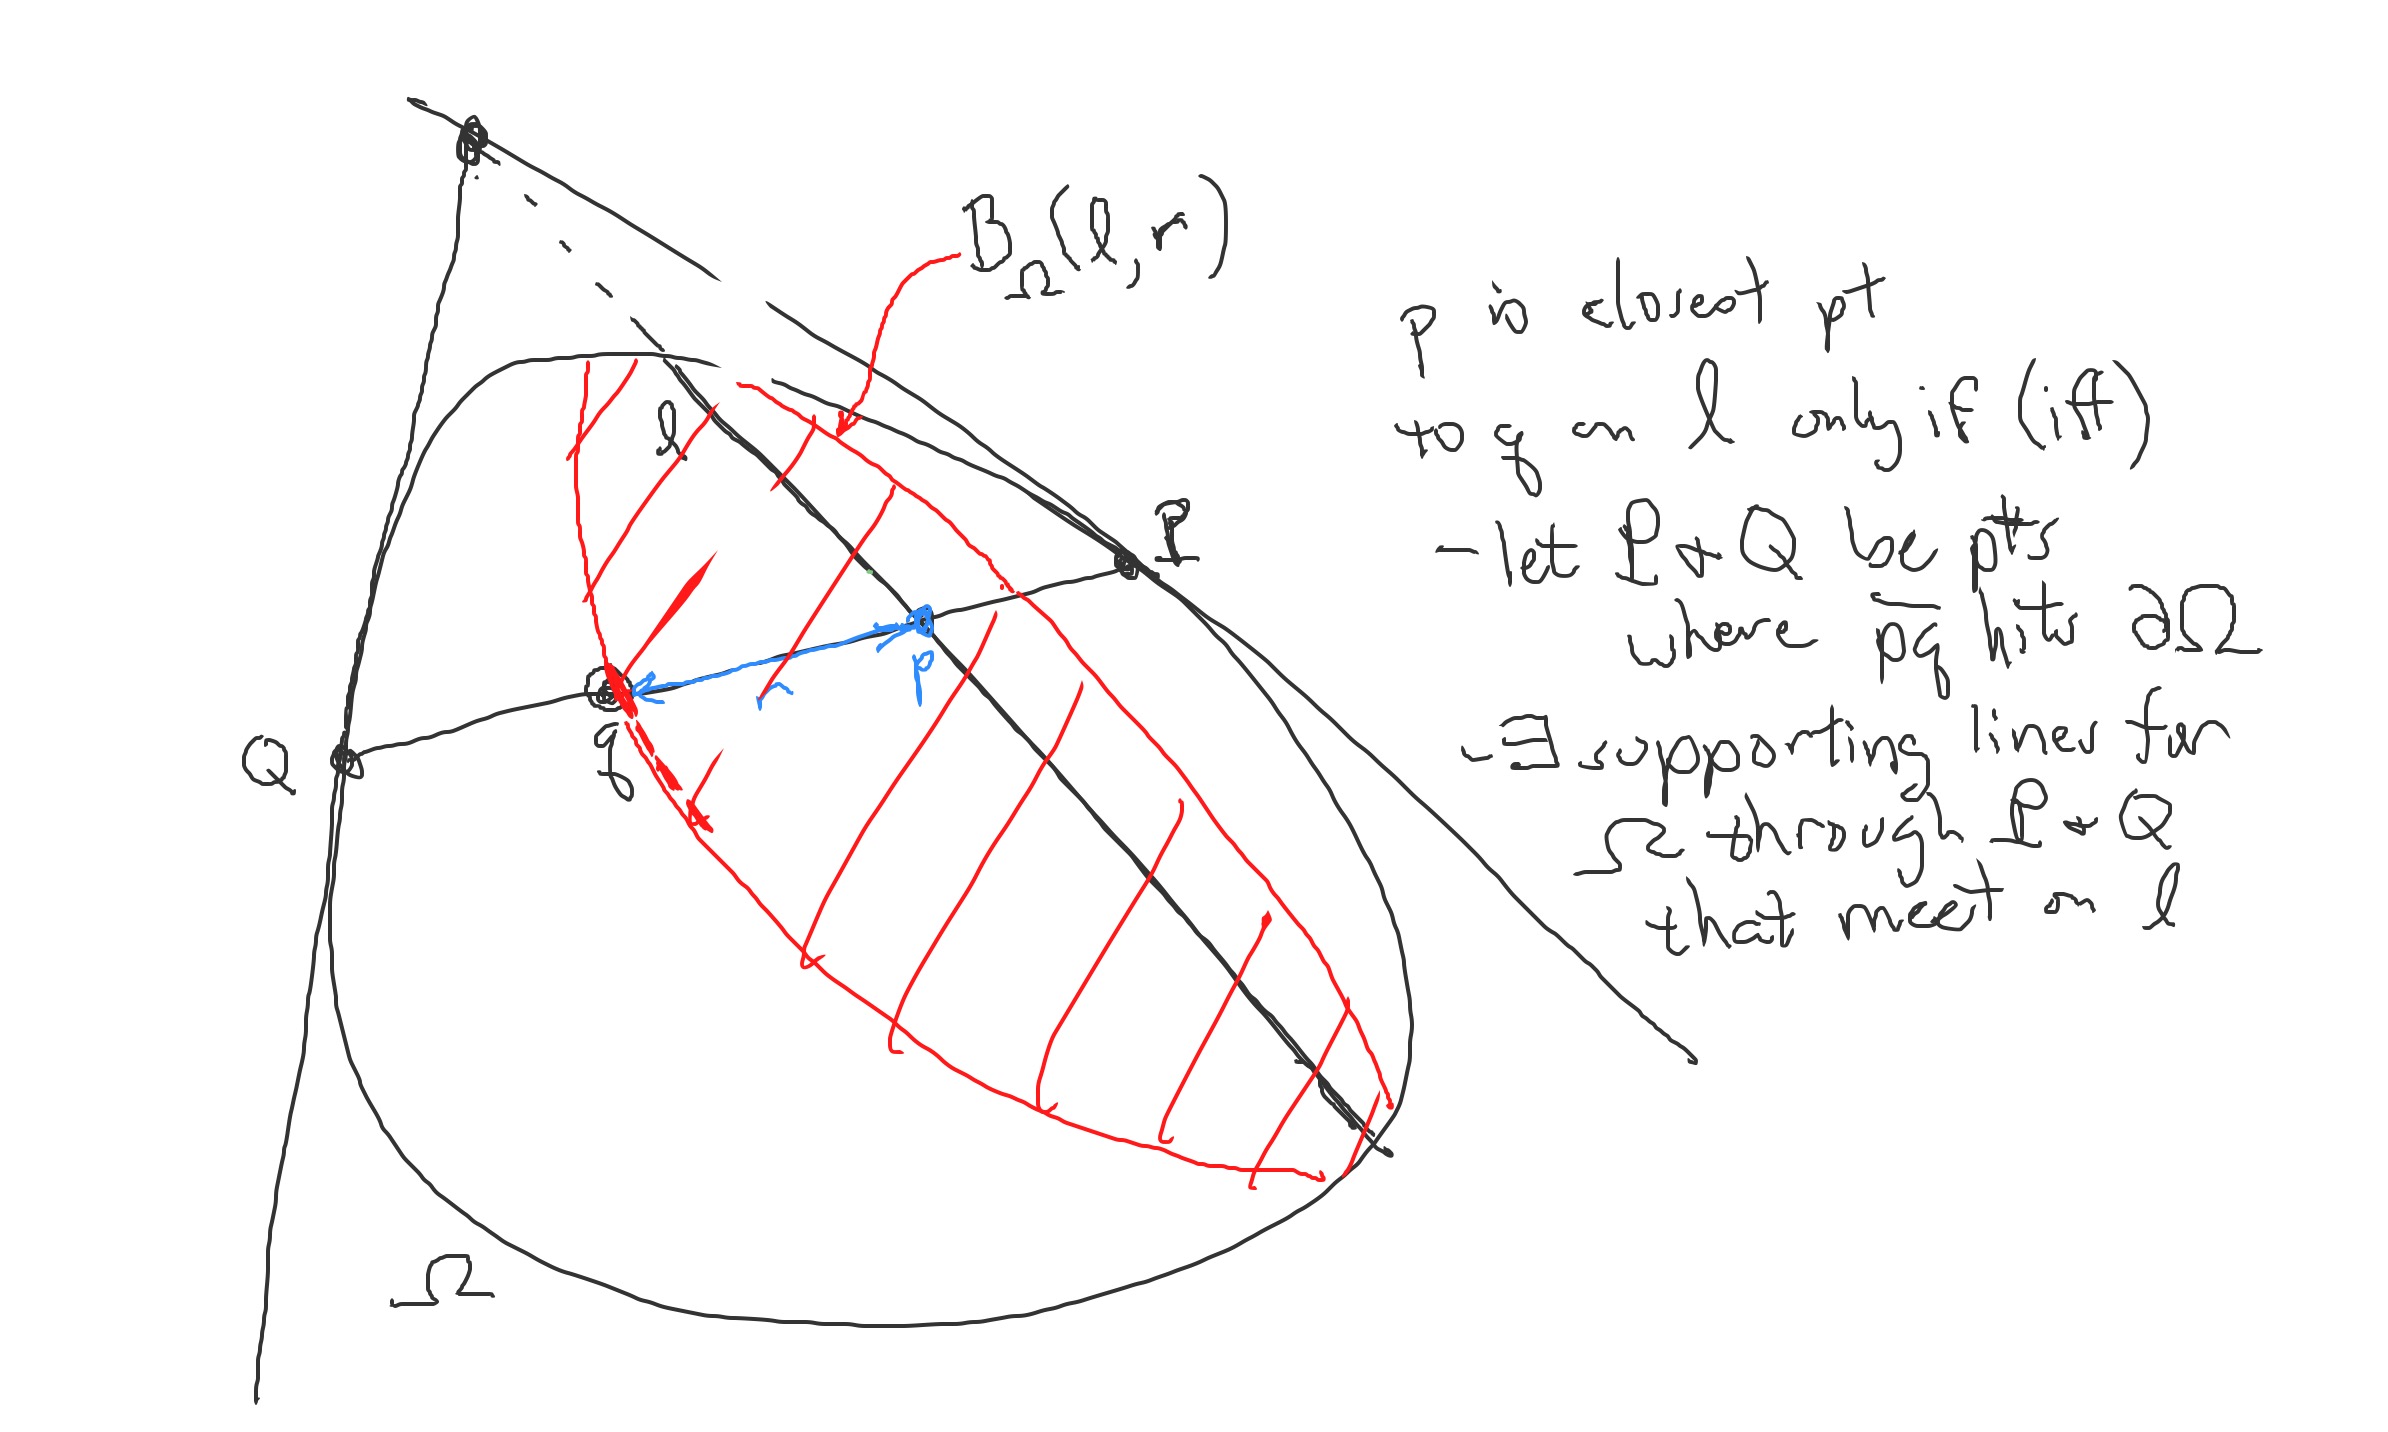 B_Ω(l, r)
P
l
r
p
Q
q
Ω
p is closest pt
to q on l only if (iff)
- let P & Q be pts
where p̅q̅ hits ∂Ω
- ∃ supporting lines for
Ω through P & Q
that meet on l